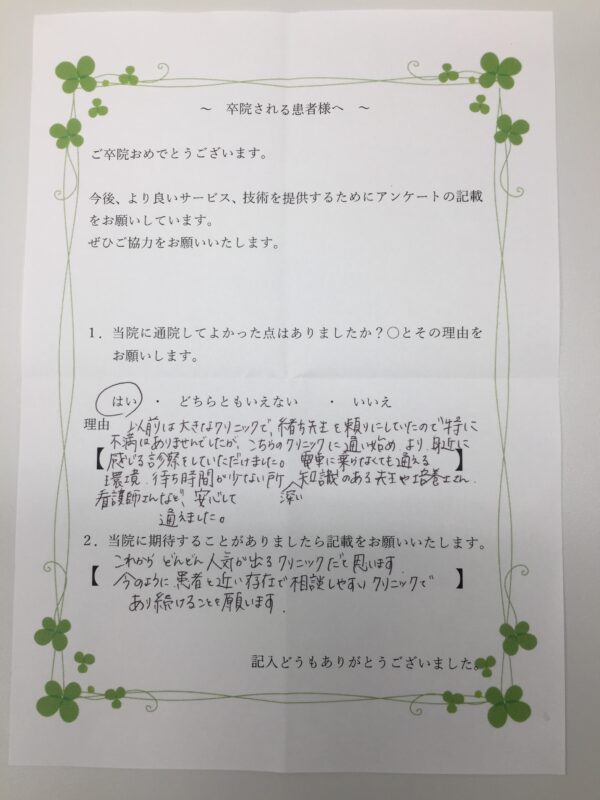 ～ 卒院される患者様へ ～
ご卒院おめでとうございます。
今後、より良いサービス、技術を提供するためにアンケートの記載
をお願いしています。
ぜひご協力をお願いいたします。
1．当院に通院してよかった点はありましたか？○とその理由を
お願いします。
はい ・ どちらともいえない ・ いいえ
理由 以前は大きなクリニックで、緒方先生を頼りにしていたので特に
不満はありませんでしたが、こちらのクリニックに通い始め、より身近に
【感じる診察をしていただけました。電車に乗らなくても通える】
環境、待ち時間が少ない所、深い知識のある先生や培養士さん、
看護師さんなど、安心して
通えました。
2．当院に期待することがありましたら記載をお願いいたします。
これから どんどん人気が出るクリニックだと思います。
【今のように患者と近い存在で相談しやすいクリニックで】
あり続けることを願います。
記入どうもありがとうございました。